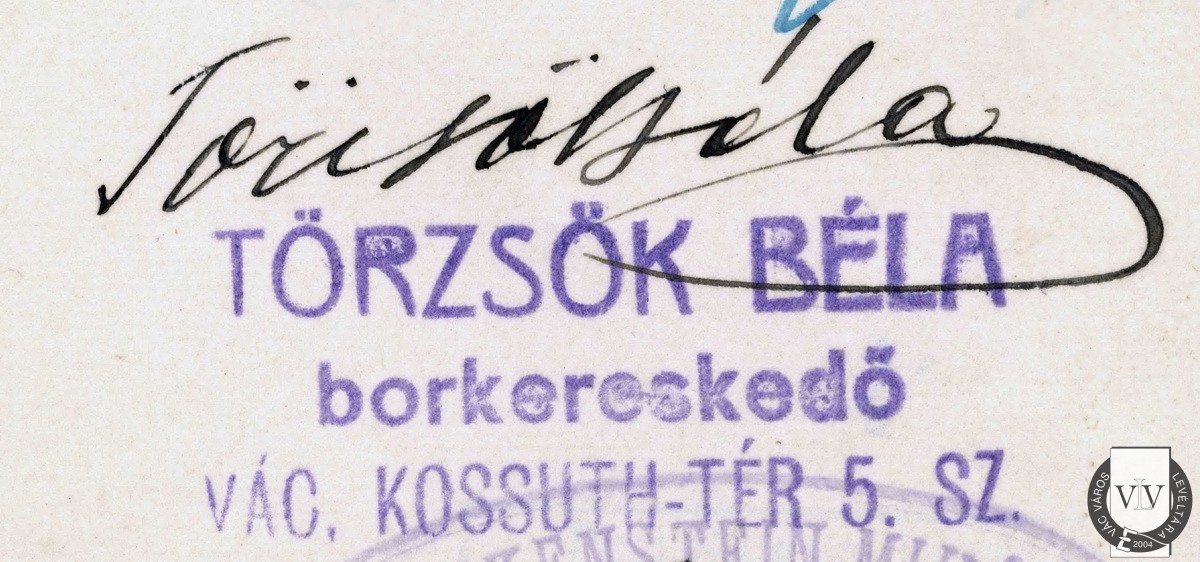 Törzsök Béla
TÖRZSÖK BÉLA
borkereskedő
VÁC, KOSSUTH-TÉR 5. SZ.
VÁC VÁROS LEVÉLTÁRA
VLV
2004